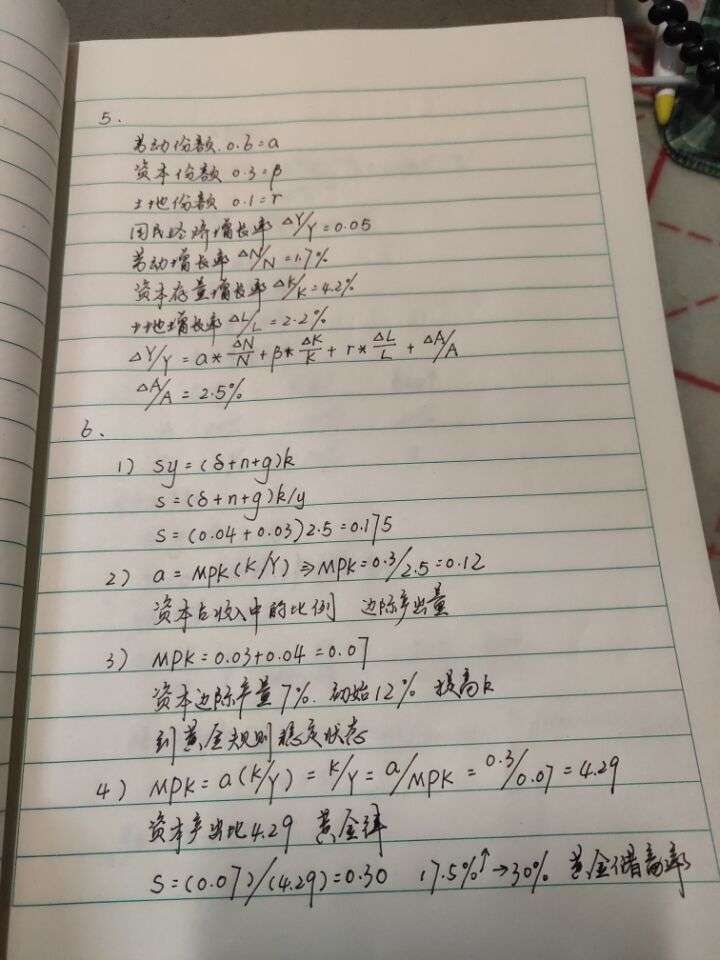 5.
劳动份额 0.6=a
资本份额 0.3=β
土地份额 0.1=r
国民经济增长率 ΔY/Y=0.05
劳动增长率 ΔN/N=1.7%
资本存量增长率 ΔK/K=4.2%
土地增长率 ΔL/L=2.2%
ΔY/Y = a* ΔN/N + β* ΔK/K + r* ΔL/L + ΔA/A
ΔA/A = 2.5%
6.
1) sy=(δ+n+g)k
s=(δ+n+g)k/y
S=(0.04+0.03)2.5=0.175
2) a=MPK(K/Y)⇒MPK=0.3/2.5=0.12
资本占收入中的比例 边际产出量
3) MPK=0.03+0.04=0.07
资本边际产量7%. 初始12% 提高k
到黄金规则稳定状态
4) MPK=a(K/Y)=K/Y=a/MPK=0.3/0.07=4.29
资本产出比4.29 黄金律
S=(0.07)/(4.29)=0.30 17.5%↑→30% 黄金储蓄率